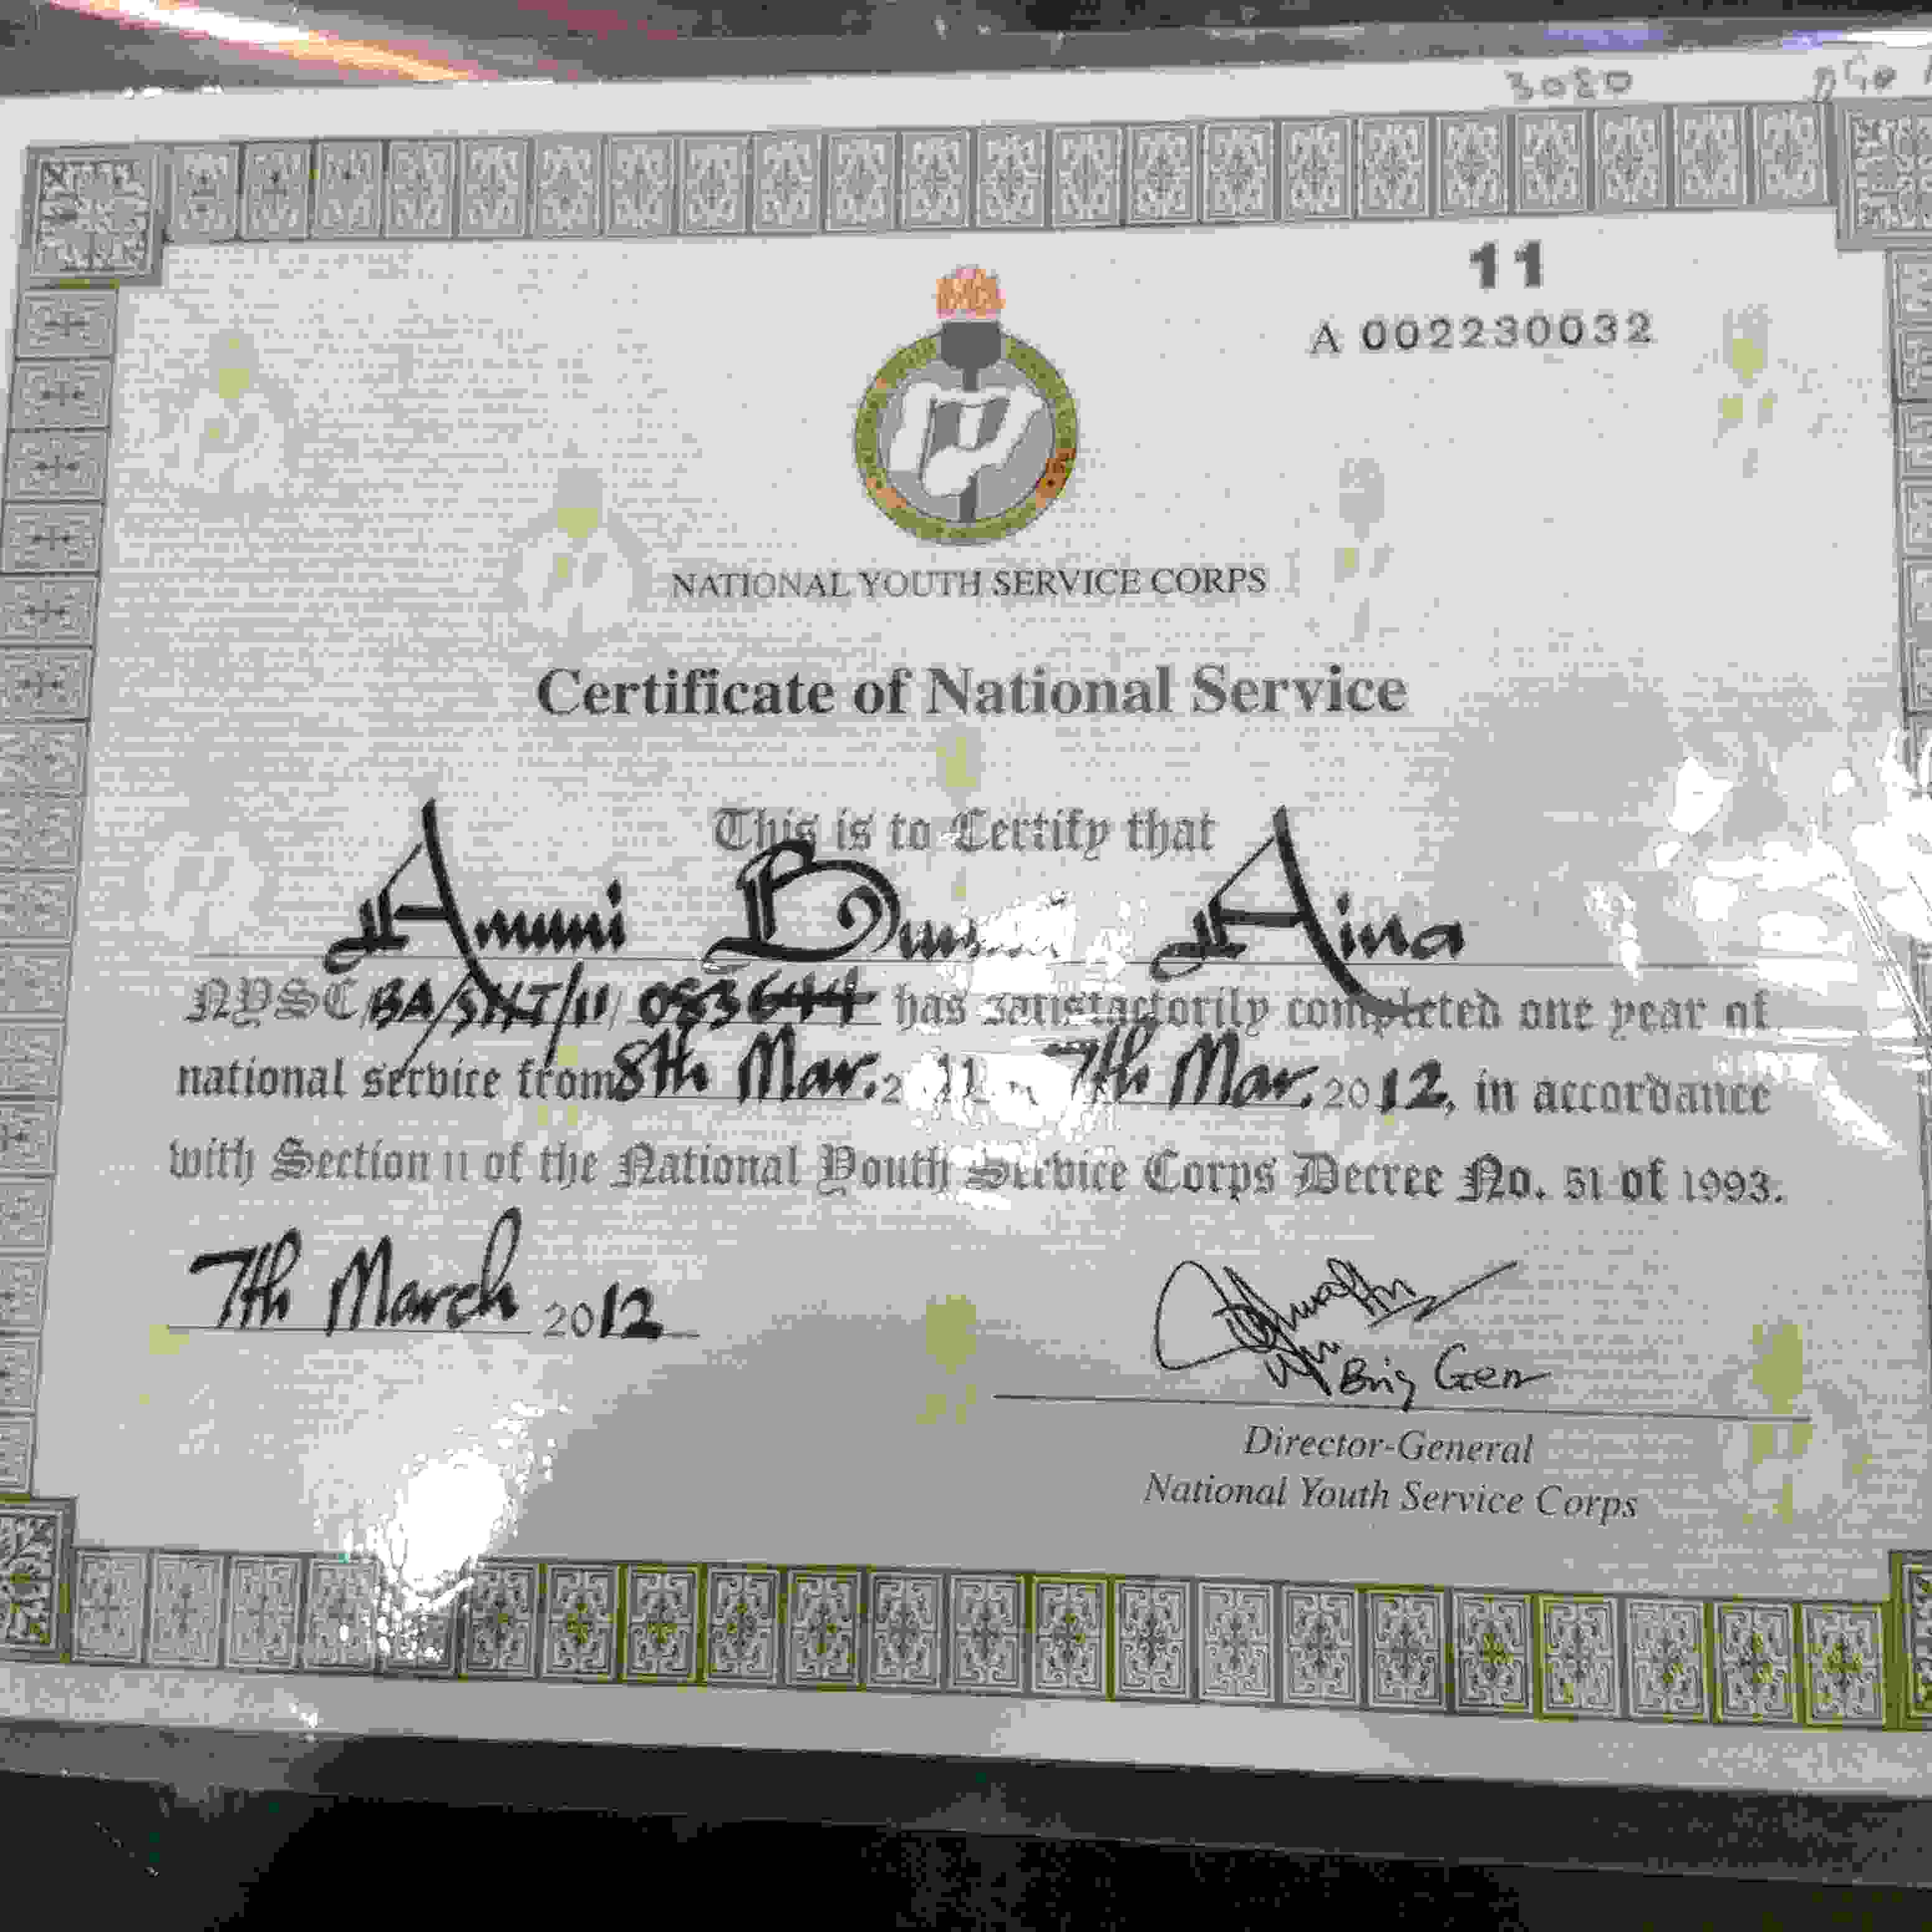 3020
11
A 002230032
NATIONAL YOUTH SERVICE CORPS
Certificate of National Service
This is to Certify that
Amuni Aina
NYSC/BA/SNT/11/083644 has satisfactorily completed one year of
national service from 8th Mar. 2 11 7th Mar. 2012, in accordance
with Section 11 of the National Youth Service Corps Decree No. 51 of 1993.
7th March 2012
Brig Gen
Director-General
National Youth Service Corps